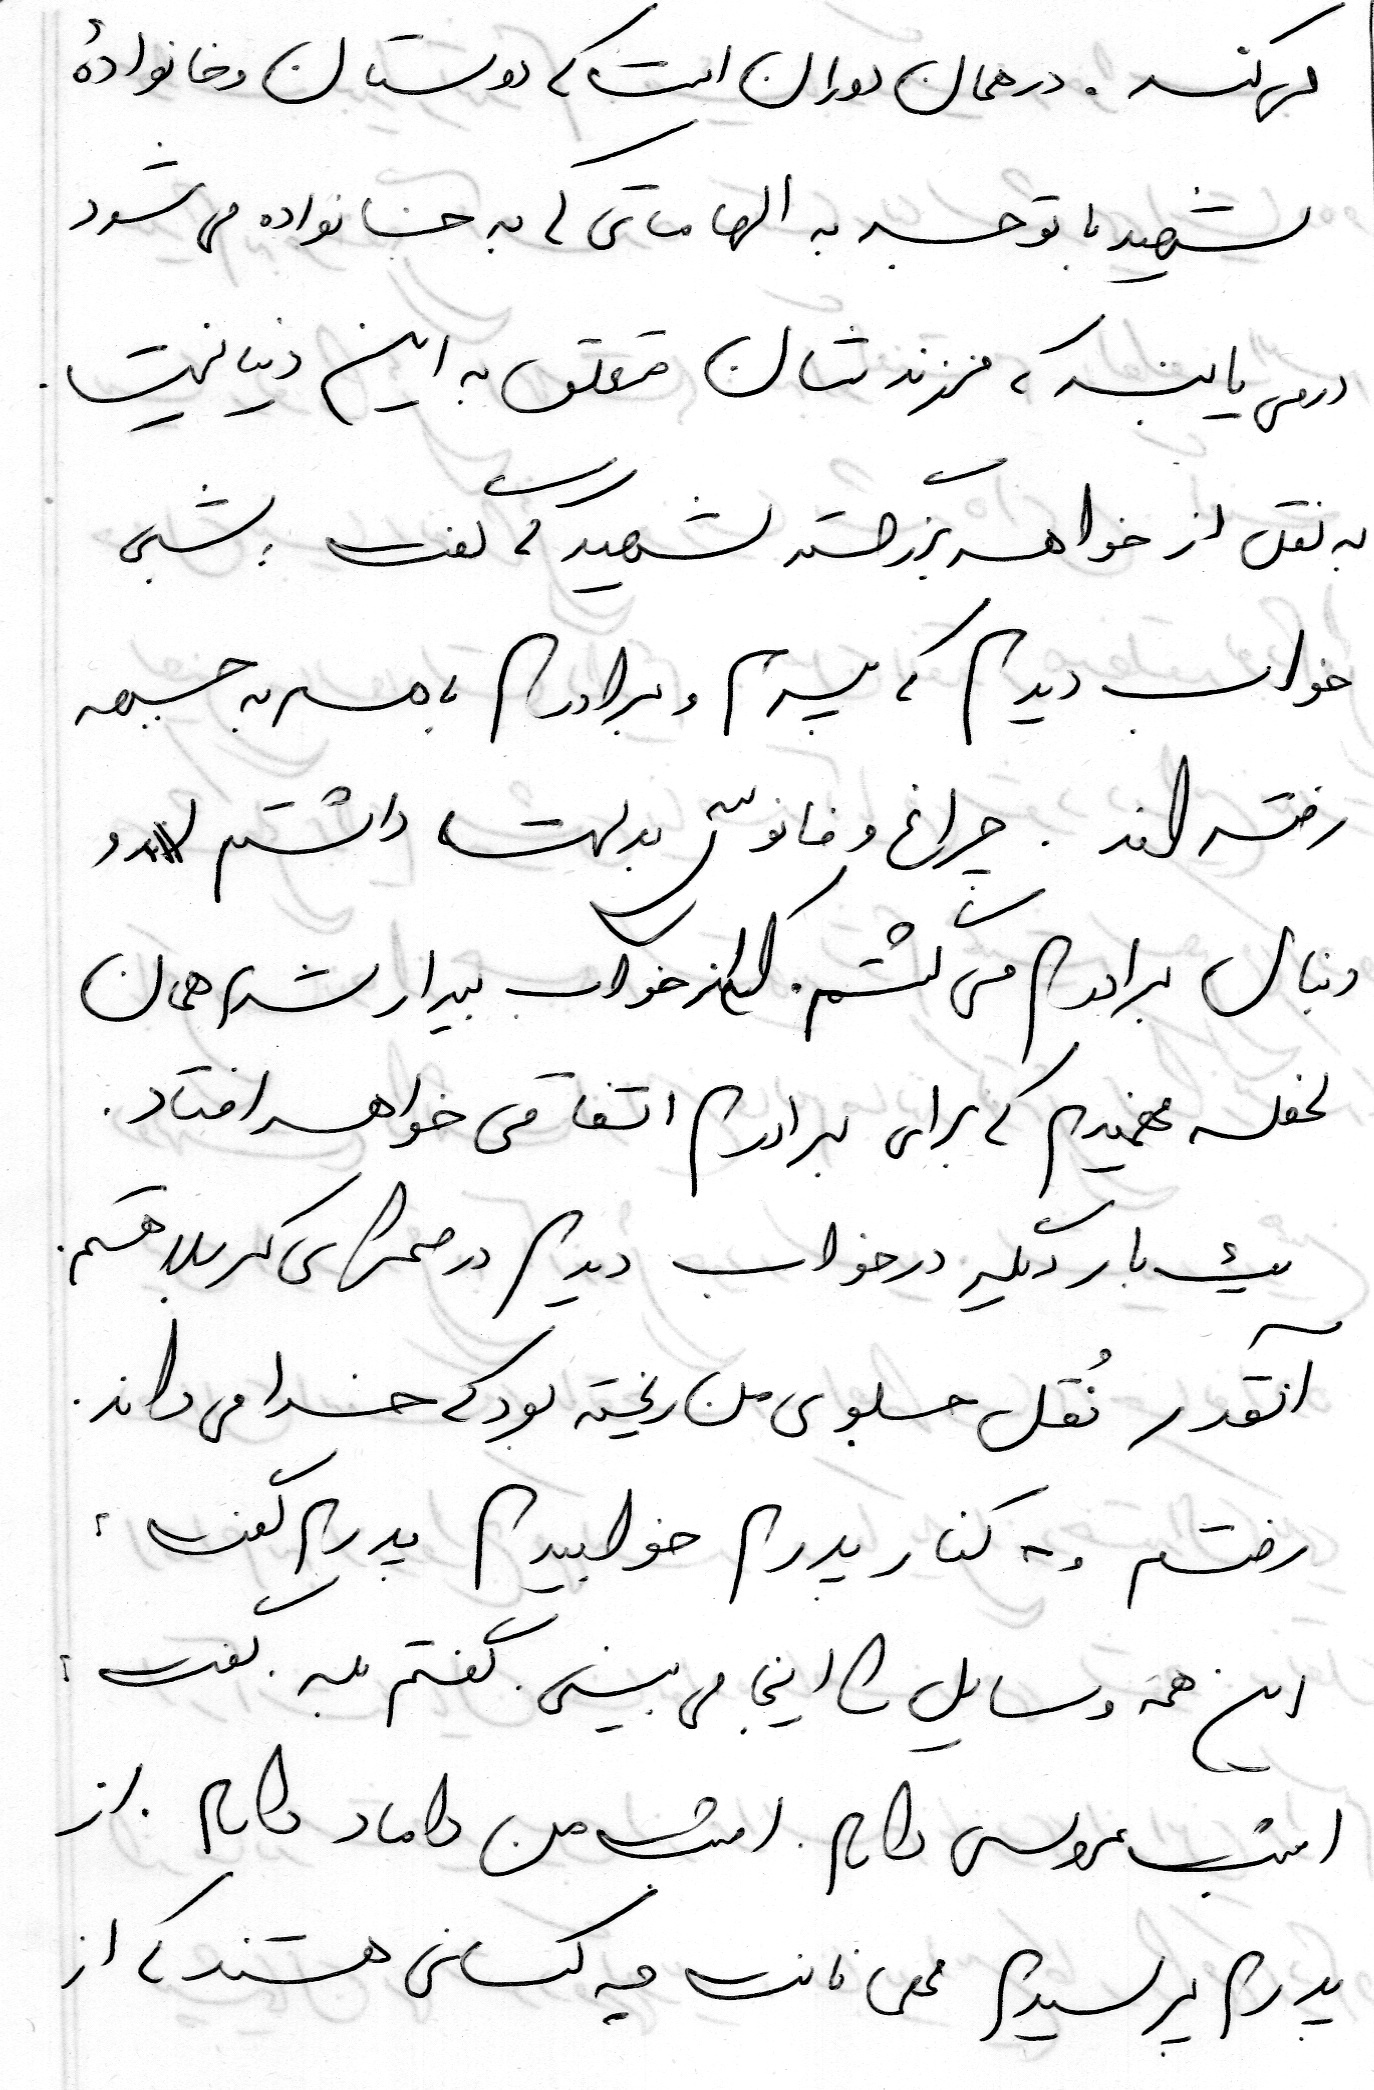 می‌کند. در همان دوران است که دوستان و خانوادهٔ
شهید با توجه به الهاماتی که به خانواده می‌شود
درمی‌یابند که فرزندشان متعلق به این دنیا نیست.
به نقل از خواهر بزرگتر شهید که گفت: شبی
خواب دیدم که پسرم و برادرم با هم به جبهه
رفته‌اند. چراغ و فانوسی بدست داشتم و
دنبال برادرم می‌گشتم. از خواب بیدار شدم همان
لحظه فهمیدم که برای برادرم اتفاقی خواهد افتاد.
یک بار دیگر در خواب دیدم در صحرای کربلا هستم.
آنقدر نُقل جلوی من ریخته بود که خدا می‌داند.
رفتم و به کنار پدرم خوابیدم پدرم گفت:
این همه وسایل را اینجا می‌بینی. گفتم بله. گفت:
امشب عروسی دارم. امشب من داماد دارم. از
پدرم پرسیدم مهمانانت چه کسانی هستند که از